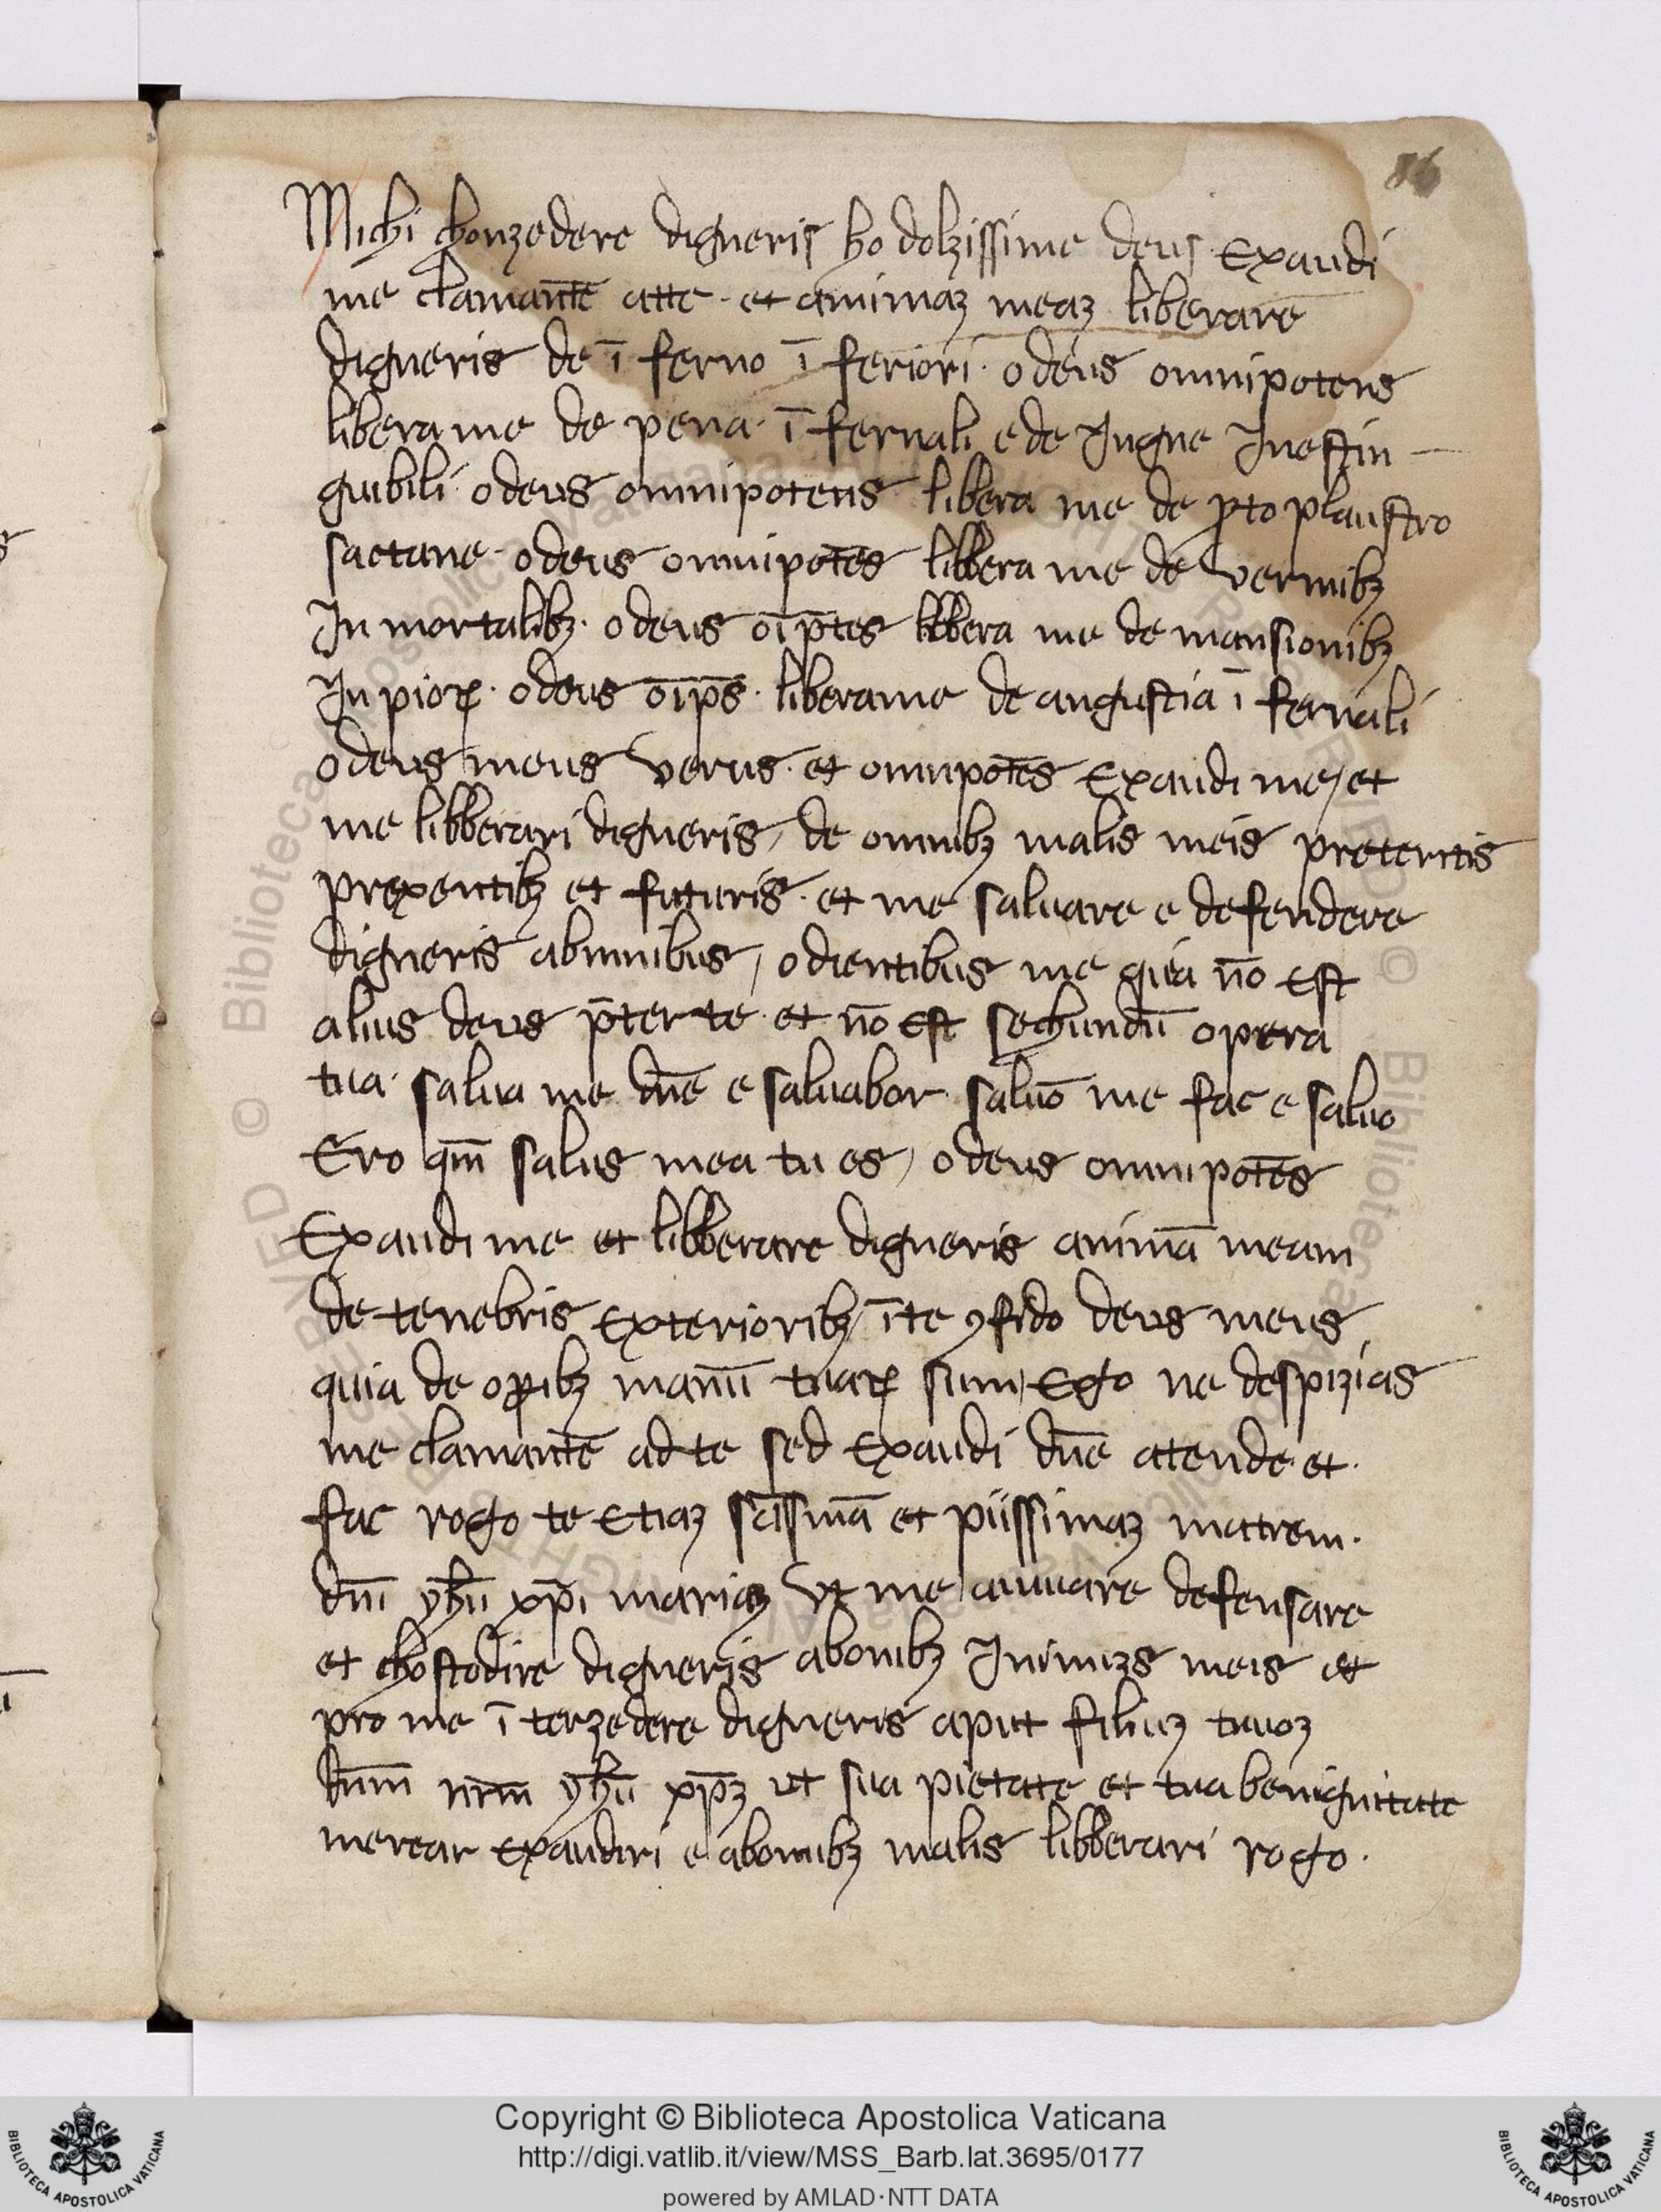 86
Michi chonzedere digneris ho dolzissime deus Exaudi
me clamantē atte · et animaʒ meaʒ liberare
digneris de ī ferno ī feriori · o deus omnipotens
libera me de pena · ī fernali e de Jngne Jnestin-
guibili · o deus omnipotens libera me de ꝓto plaustro
sactane · o deus omnipotēs libbera me de vermibʒ
Jn mortalibʒ · o deus oīptēs libbera me de mansionibʒ
Jn pioꝝ · o deus oīps̄ · libera me de angustia ī fernali
o deus meus verus · et omnipotēs Exaudi me / et
me libberari digneris / de omnibʒ malis meis preteritis
prexentibʒ et futuris · et me saluare e defendere
digneris abomnibus / odientibus me quia nō est
alius deus p̄ter te · et nō est sechundū opera
tua · salua me dn̄e e saluabor · saluō me fac e saluo
Ero qm̄ salus mea tu es / o deus omnipotēs
Exaudi me et libberare digneris animā meam
de tenebris exterioribʒ / ī te ꝯfido deus meus
quia de oꝑibʒ manuū tuaꝝ sum / Ego ne despizias
me clamantē ad te sed Exaudi dn̄e atende · et ·
fac rogo te Etiaʒ sc̄issimā et piissimaʒ mattrem ·
dn̄i yhū xp̄i mariaʒ vt me aiuuare defensare
et chostodire digneris abonibʒ Jnimizs meis et
pro me ī terzedere digneris aput filiuʒ tuuoʒ
dn̄m nr̄m yhū xp̄ʒ ut sua pietate et tua benignitate
merear exaudiri e abomibʒ malis libberari rogo ·
Copyright © Biblioteca Apostolica Vaticana
http://digi.vatlib.it/view/MSS_Barb.lat.3695/0177
powered by AMLAD·NTT DATA
BIBLIOTECA APOSTOLICA VATICANA
BIBLIOTECA APOSTOLICA VATICANA